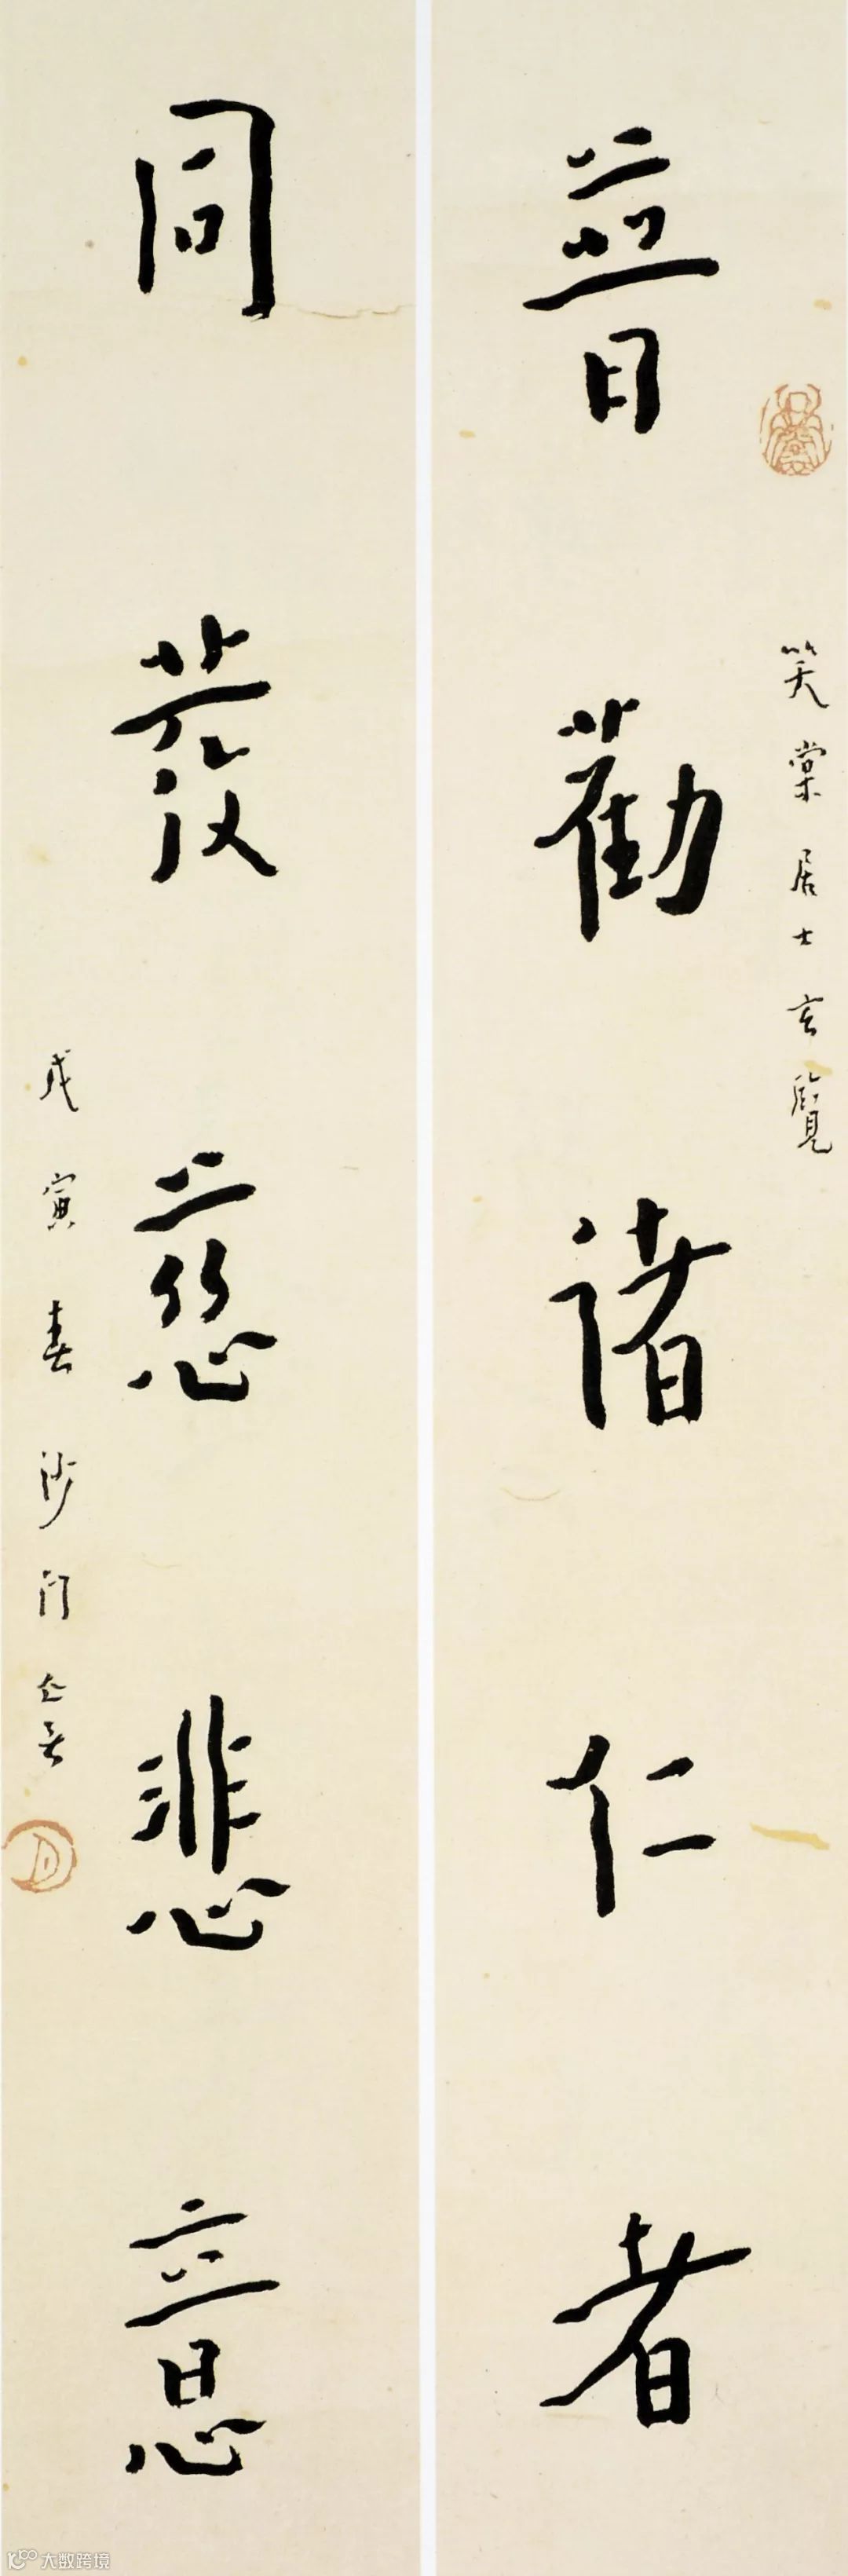 笑棠居士玄覽
普勸諸仁者
同發慈悲意
戊寅春沙門
大数跨境